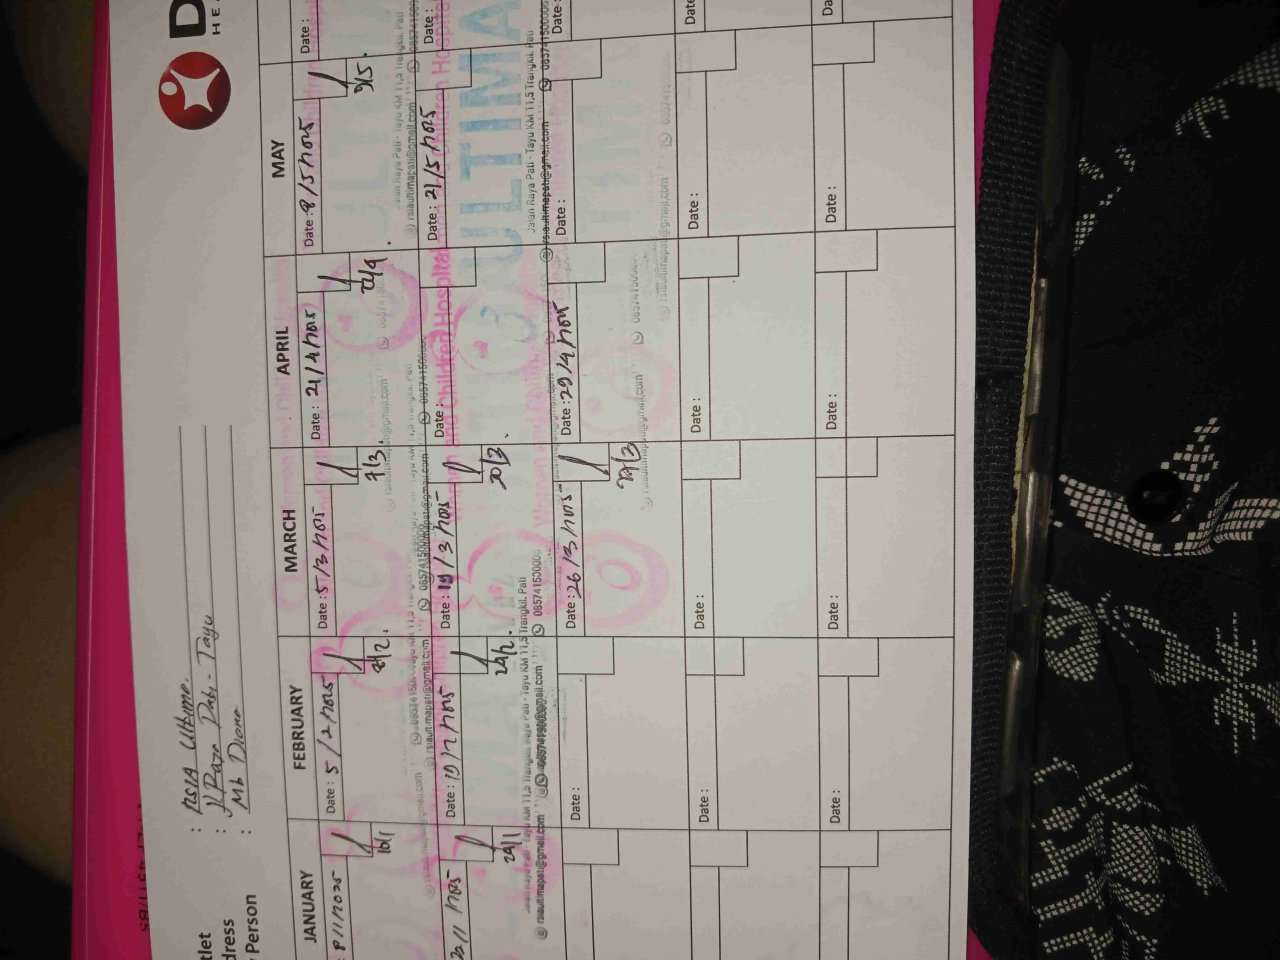 D
HEA
tlet : RSIA Ultima.
dress : Jl Raya Pati - Tayu
Person : Mb Diana
JANUARY FEBRUARY MARCH APRIL MAY
: 8/1/2025 Date : 5/2/2025 Date : 5/3/2025 Date : 21/4/2025 Date : 8/5/2025 Date :
10/1 8/2. 7/3. 22/4 9/5.
22/1 2025 Date : 19/2/2025 Date : 19/3/2025 Date : Date : 21/5/2025 Date :
24/1 24/2. 20/3.
Date : Date : 26/3/2025 Date : 29/4/2025 Date : Date :
27/3
Date : Date : Date : Date : Date
Date : Date : Date : Date : Da
Women and Children Hospital
ULTIMA
Jalan Raya Pati - Tayu KM 11,5 Trangkil, Pati
rsiaultimapati@gmail.com 085741500000